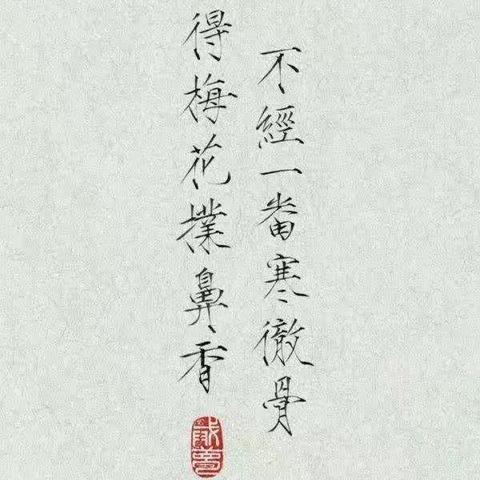 不經一番寒徹骨
得梅花撲鼻香